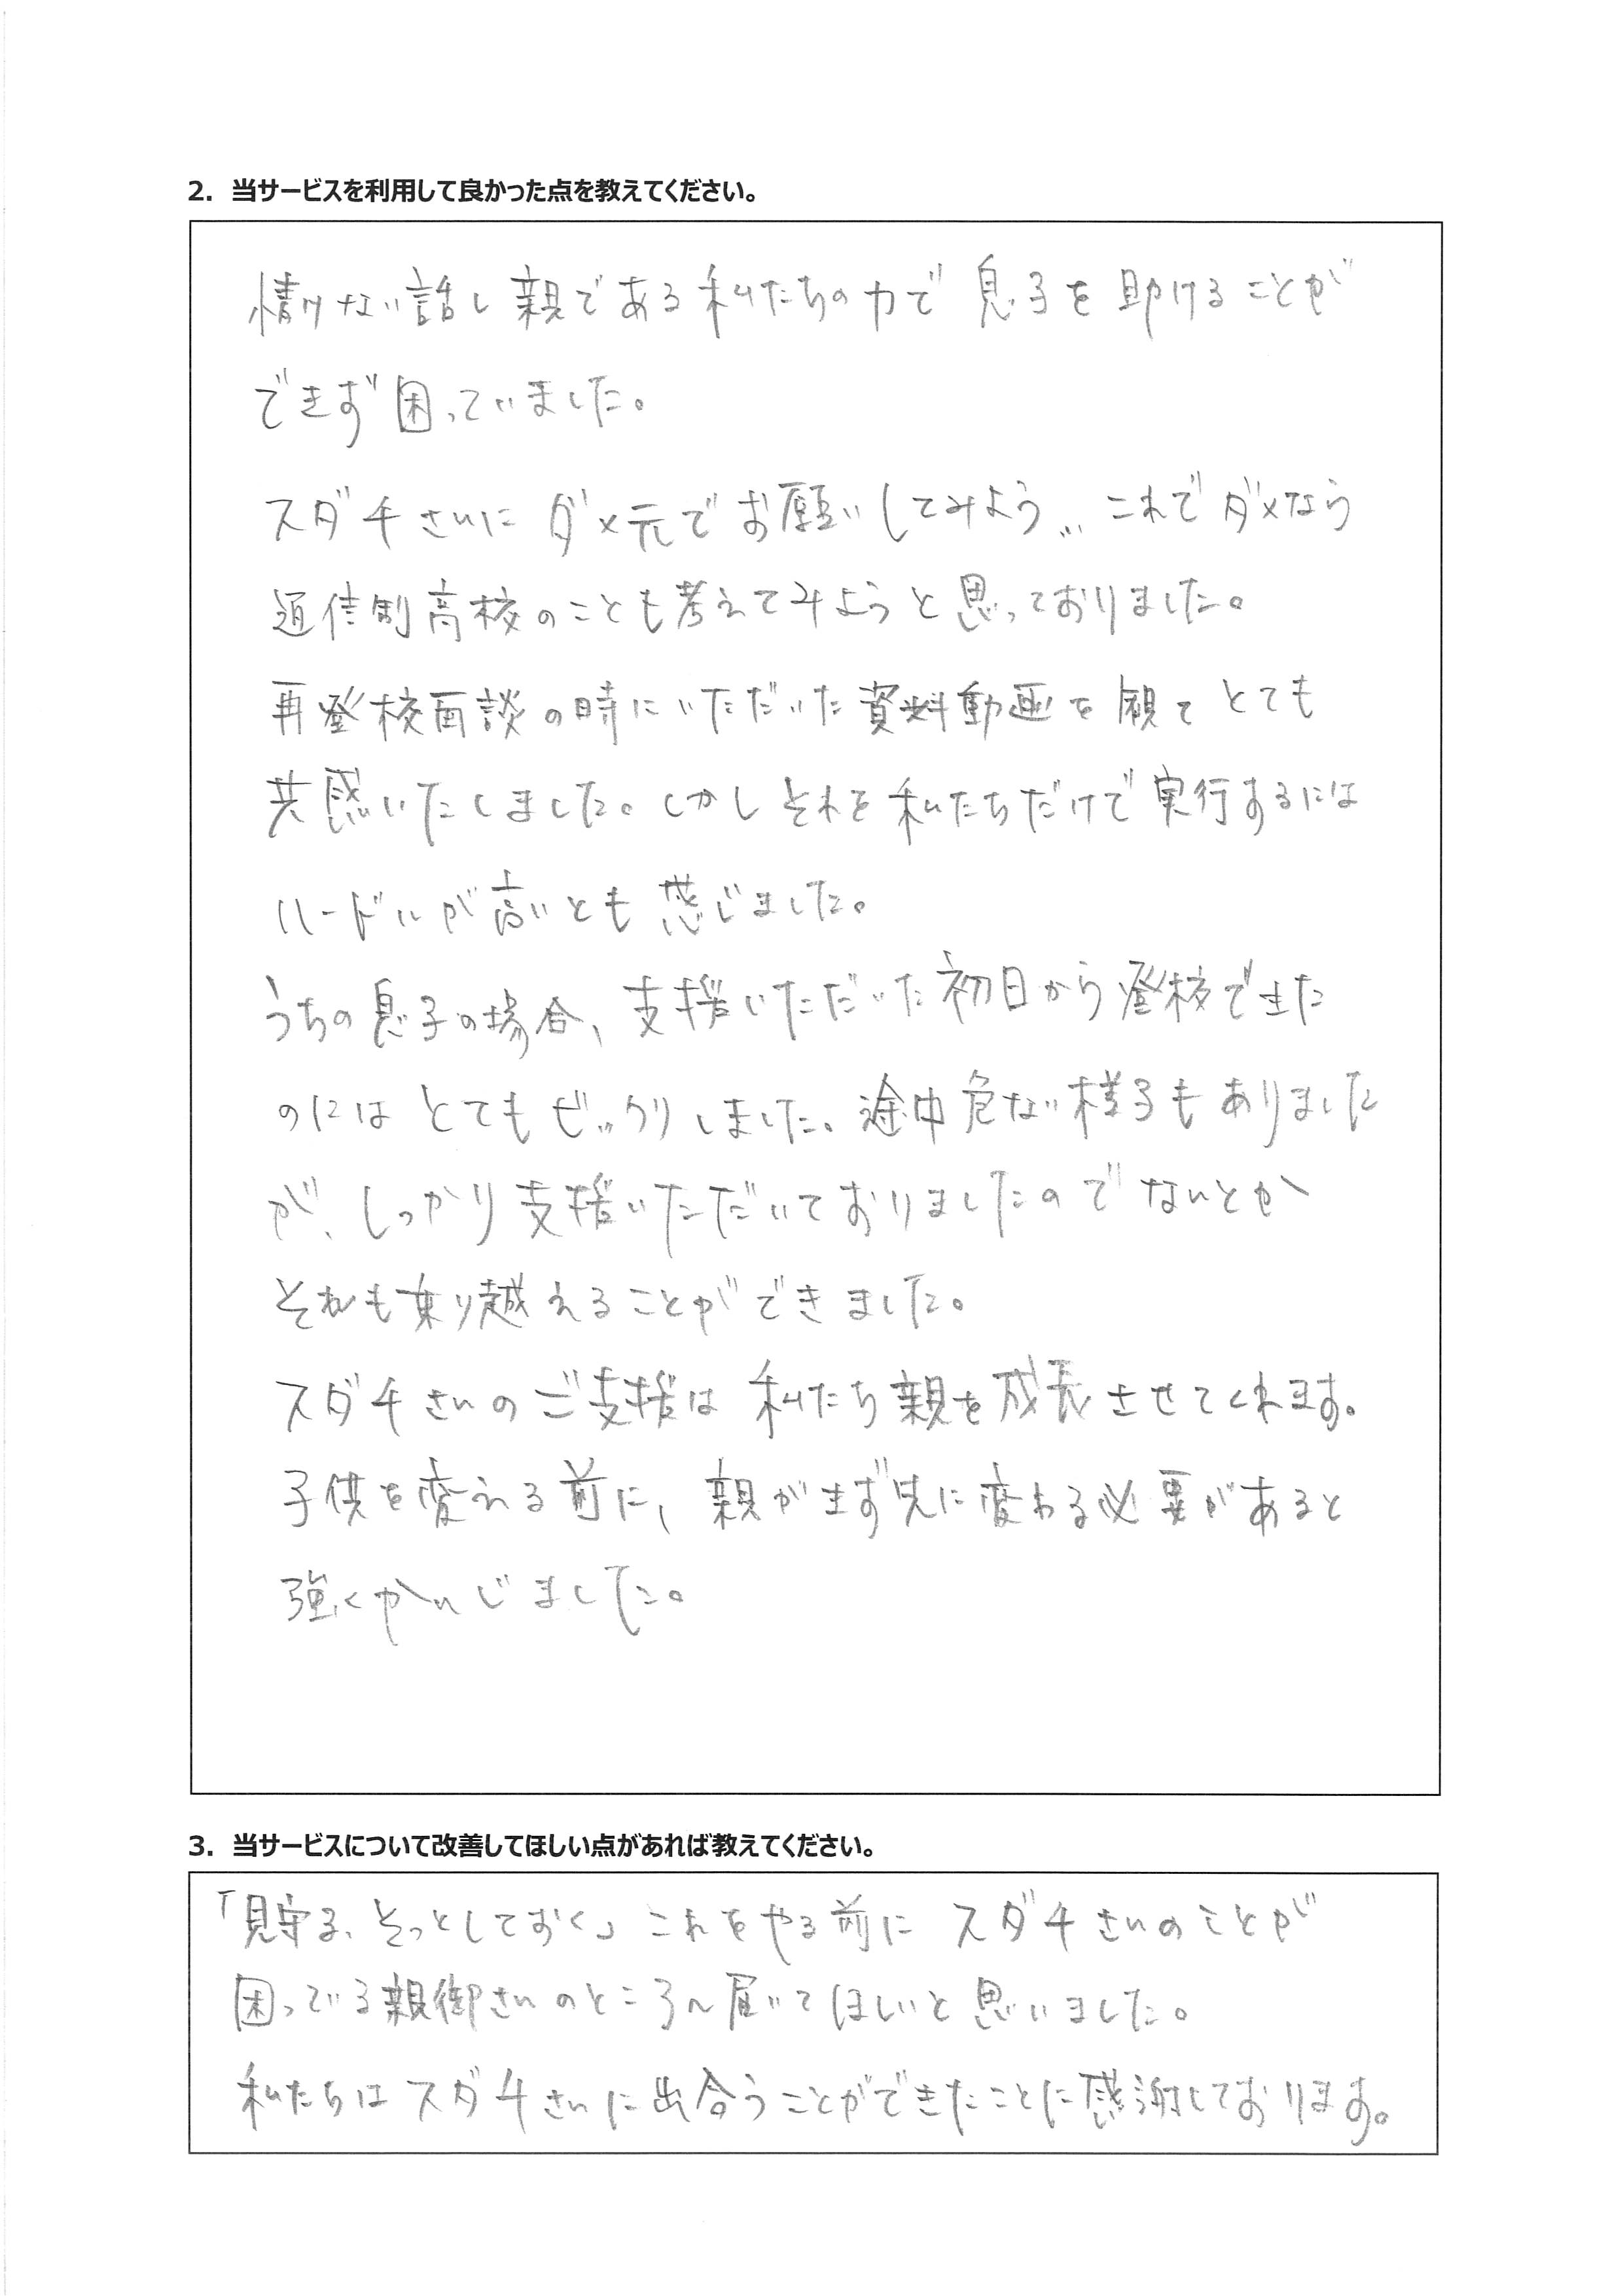 2. 当サービスを利用して良かった点を教えてください。
情けない話し親である私たちの力で息子を助けることが
できず困っていました。
スダチさんにダメ元でお願いしてみよう… これでダメなら
通信制高校のことも考えてみようと思っておりました。
再登校面談の時にいただいた資料動画を観てとても
共感いたしました。しかしそれを私たちだけで実行するには
ハードルが高いとも感じました。
うちの息子の場合、支援いただいた初日から登校できた
のにはとてもビックリしました。途中危ない様子もありました
が、しっかり支援いただいておりましたのでなんとか
それも乗り越えることができました。
スダチさんのご支援は私たち親を成長させてくれます。
子供を変える前に、親がまず先に変わる必要があると
強くかんじました。
3. 当サービスについて改善してほしい点があれば教えてください。
「見守る、そっとしておく」これをやる前にスダチさんのことが
困っている親御さんのところへ届いてほしいと思いました。
私たちはスダチさんに出合うことができたことに感謝しております。